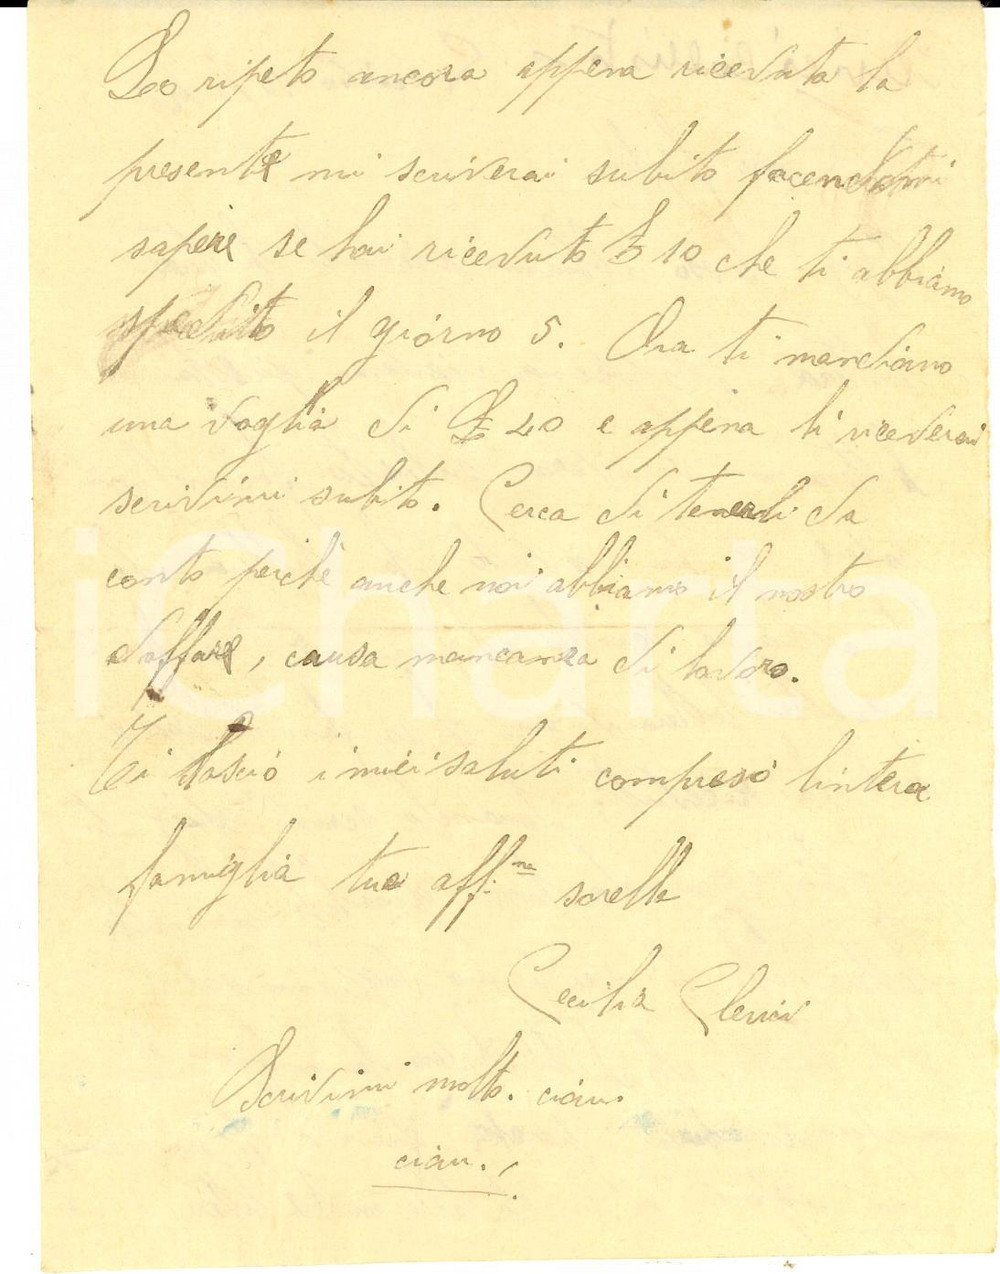 Lo ripeto ancora appena ricevuta la
presente mi scriverai subito facendomi
sapere se hai ricevuto £ 10 che ti abbiamo
spedito il giorno 5. Ora ti mandiamo
una vaglia di £ 40 e appena li riceverai
scrivimi subito. Cerca di tenerli da
conto perchè anche noi abbiamo il nostro
daffare, causa mancanza di lavoro.
Ti lascio i miei saluti compreso lintera
famiglia tua aff.ma sorella
Cecilia Clerici
Scrivimi molto. ciau.
ciau.
iCharta